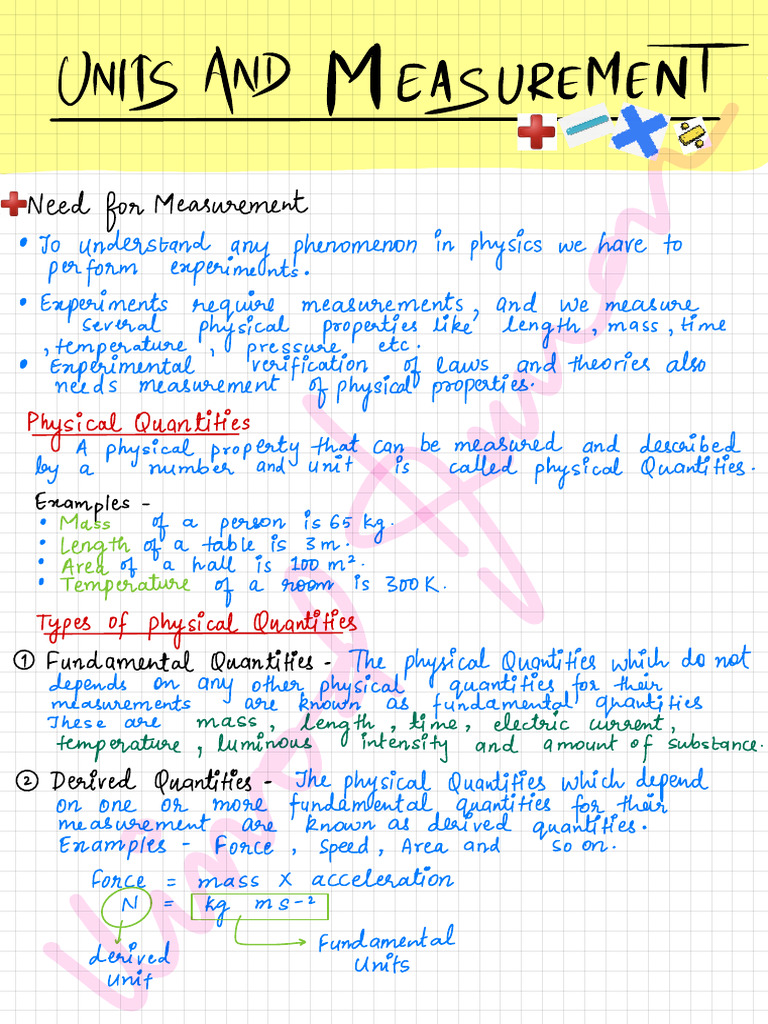 UNITS AND MEASUREMENT
Need for Measurement
• To understand any phenomenon in physics we have to
perform experiments.
• Experiments require measurements, and we measure
several physical properties like length, mass, time
, temperature, pressure etc.
• Experimental verification of laws and theories also
needs measurement of physical properties.
Physical Quantities
A physical property that can be measured and described
by a number and unit is called physical Quantities.
Examples -
• Mass of a person is 65 kg.
• Length of a table is 3m.
• Area of a hall is 100 m².
• Temperature of a room is 300 K.
Types of physical Quantities
① Fundamental Quantities - The physical Quantities which do not
depends on any other physical quantities for their
measurements are known as fundamental quantities
These are mass, length, time, electric current,
temperature, luminous intensity and amount of substance.
② Derived Quantities - The physical Quantities which depend
on one or more fundamental quantities for their
measurement are known as derived quantities.
Examples - Force, Speed, Area and so on.
force = mass × acceleration
N = kg ms-²
derived
unit
Fundamental
Units